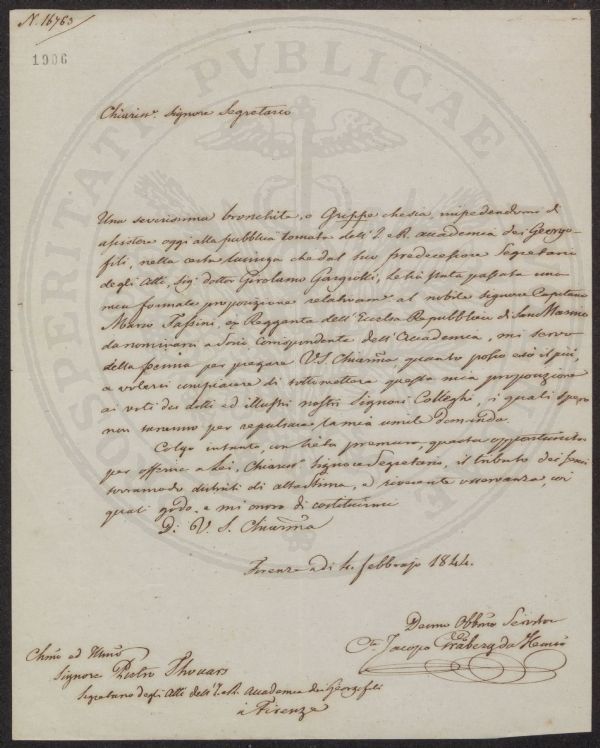 N. 16763
1906
PROSPERITATI PVBLICAE
Chiariss.º Signore Segretario
Una severissima bronchite, o Grippe che sia, impedendomi di
assistere oggi alla pubblica tornata dell'I. e R. Accademia dei Georgo-
fili, nella certa che dal suo Predecessore Segretario
degli Atti, Sig.' dottor Girolamo Gargiolli, Le sia stata passata una
mia formale proposizione relativam. al nobile Signore Capitano
Marino Tassini, ex Reggente dell'Eccelsa Repubblica di San Marino
da nominarsi a Socio Corrispondente dell'Accademia, mi servo
della per pregare V.S. Chiarma, quanto posso essi il più,
a volersi compiacere di sottomettere questa mia proposizione
ai voti dei dotti ed illustri nostri Signori Colleghi, i quali spero
non saranno per repulsare la mia umile domanda.
Colgo intanto, con lieta premura, questa opportunità
per offerire a Lei, Chiariss. Signore Segretario, il tributo dei sensi
distinti di altissima, e riverente osservanza, coi
quali godo, e mi onoro di costituirmi
Di V. S. Chiarma
Firenze adi 4. febbrajo 1844.
Devmo Obbmo Servitor
Cte Jacopo Graberg da Hemsö
Chmo ed
Signore Pietro Thouars
Segretario degli Atti dell'I. e R. Accademia dei Georgofili
a Firenze